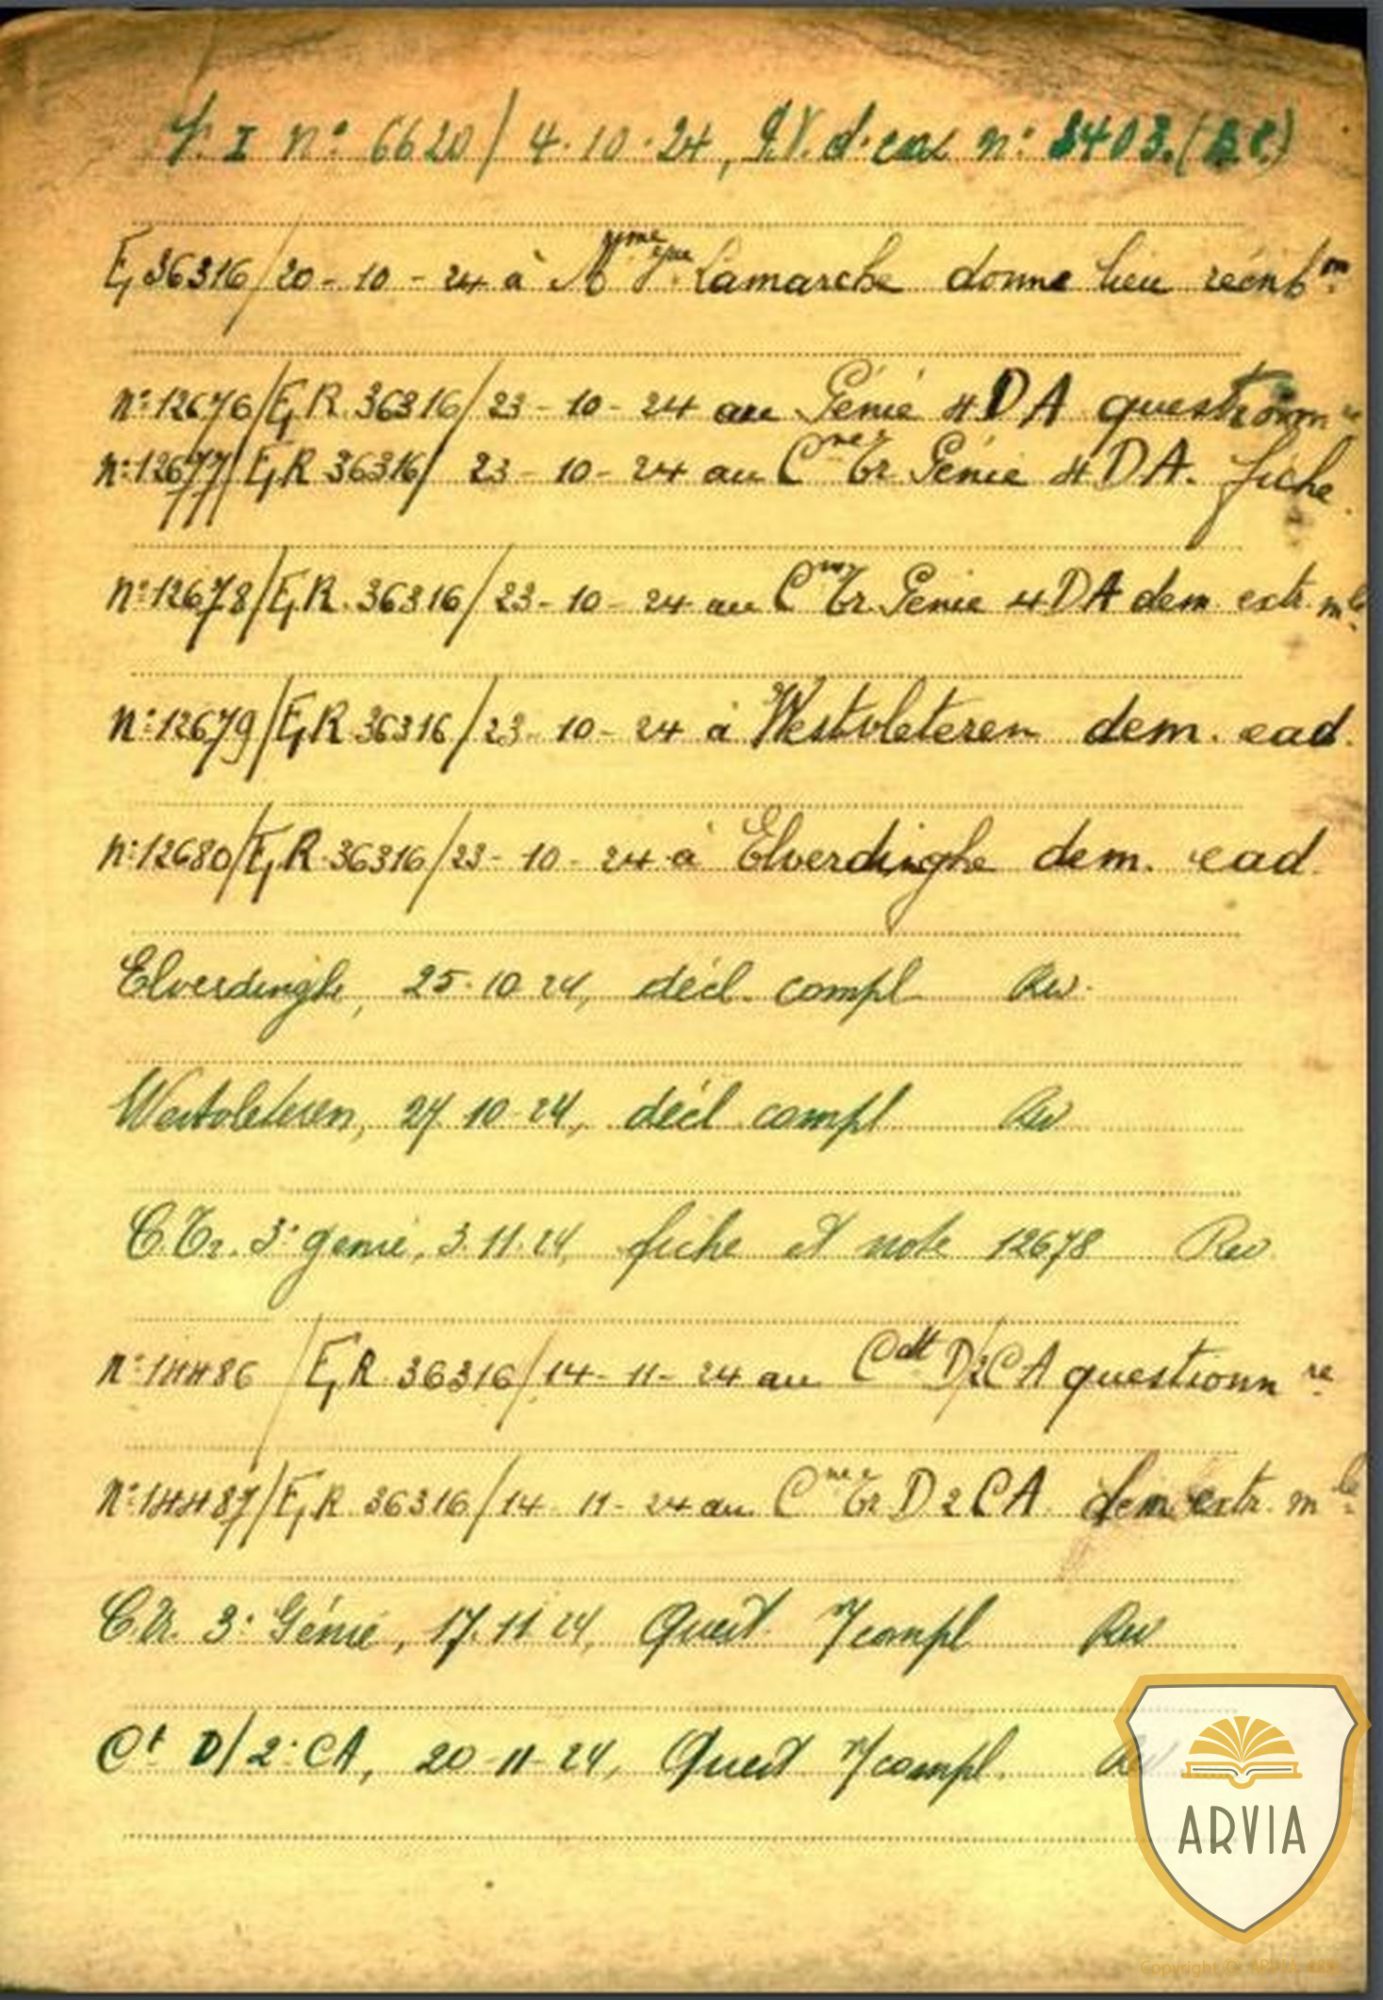 I n° 6620/ 4.10.24, P.V. d. n° 3403. (B.C.)
E, 36316/20-10-24 à Mme Lamarche donne lieu réinb
n° 12676/E, R. 36316/23-10-24 au Génie 4 DA questionn re
n° 12677/E, R 36316/ 23-10-24 au Cmr Tr Génie 4 DA. fiche
n° 12678/E, R. 36316/23-10-24 au Cmr Tr. Génie 4 DA dem extr. mle
n° 12679/E, R 36316/23-10-24 à Westvleteren dem. ead.
n° 12680/E, R. 36316/23-10-24 à Elverdinghe dem. ead.
Elverdinghe, 25.10.24, décl. compl
Westvleteren, 27.10.24, décl compl
C. Tr. 3° génie, 3.11.24, fiche et note 12678
n° 14486 /E, R. 36316/14-11-24 au Cdt D/2 CA questionn re
n° 14487/E, R. 36316/14-11-24 au Cmr Tr D 2 CA dem extr. mle
C. Tr. 3° Génie, 17.11.24, Quest compl
Ct D/2° CA, 20-11-24, Quest compl.
ARVIA
Copyright © ARVIA